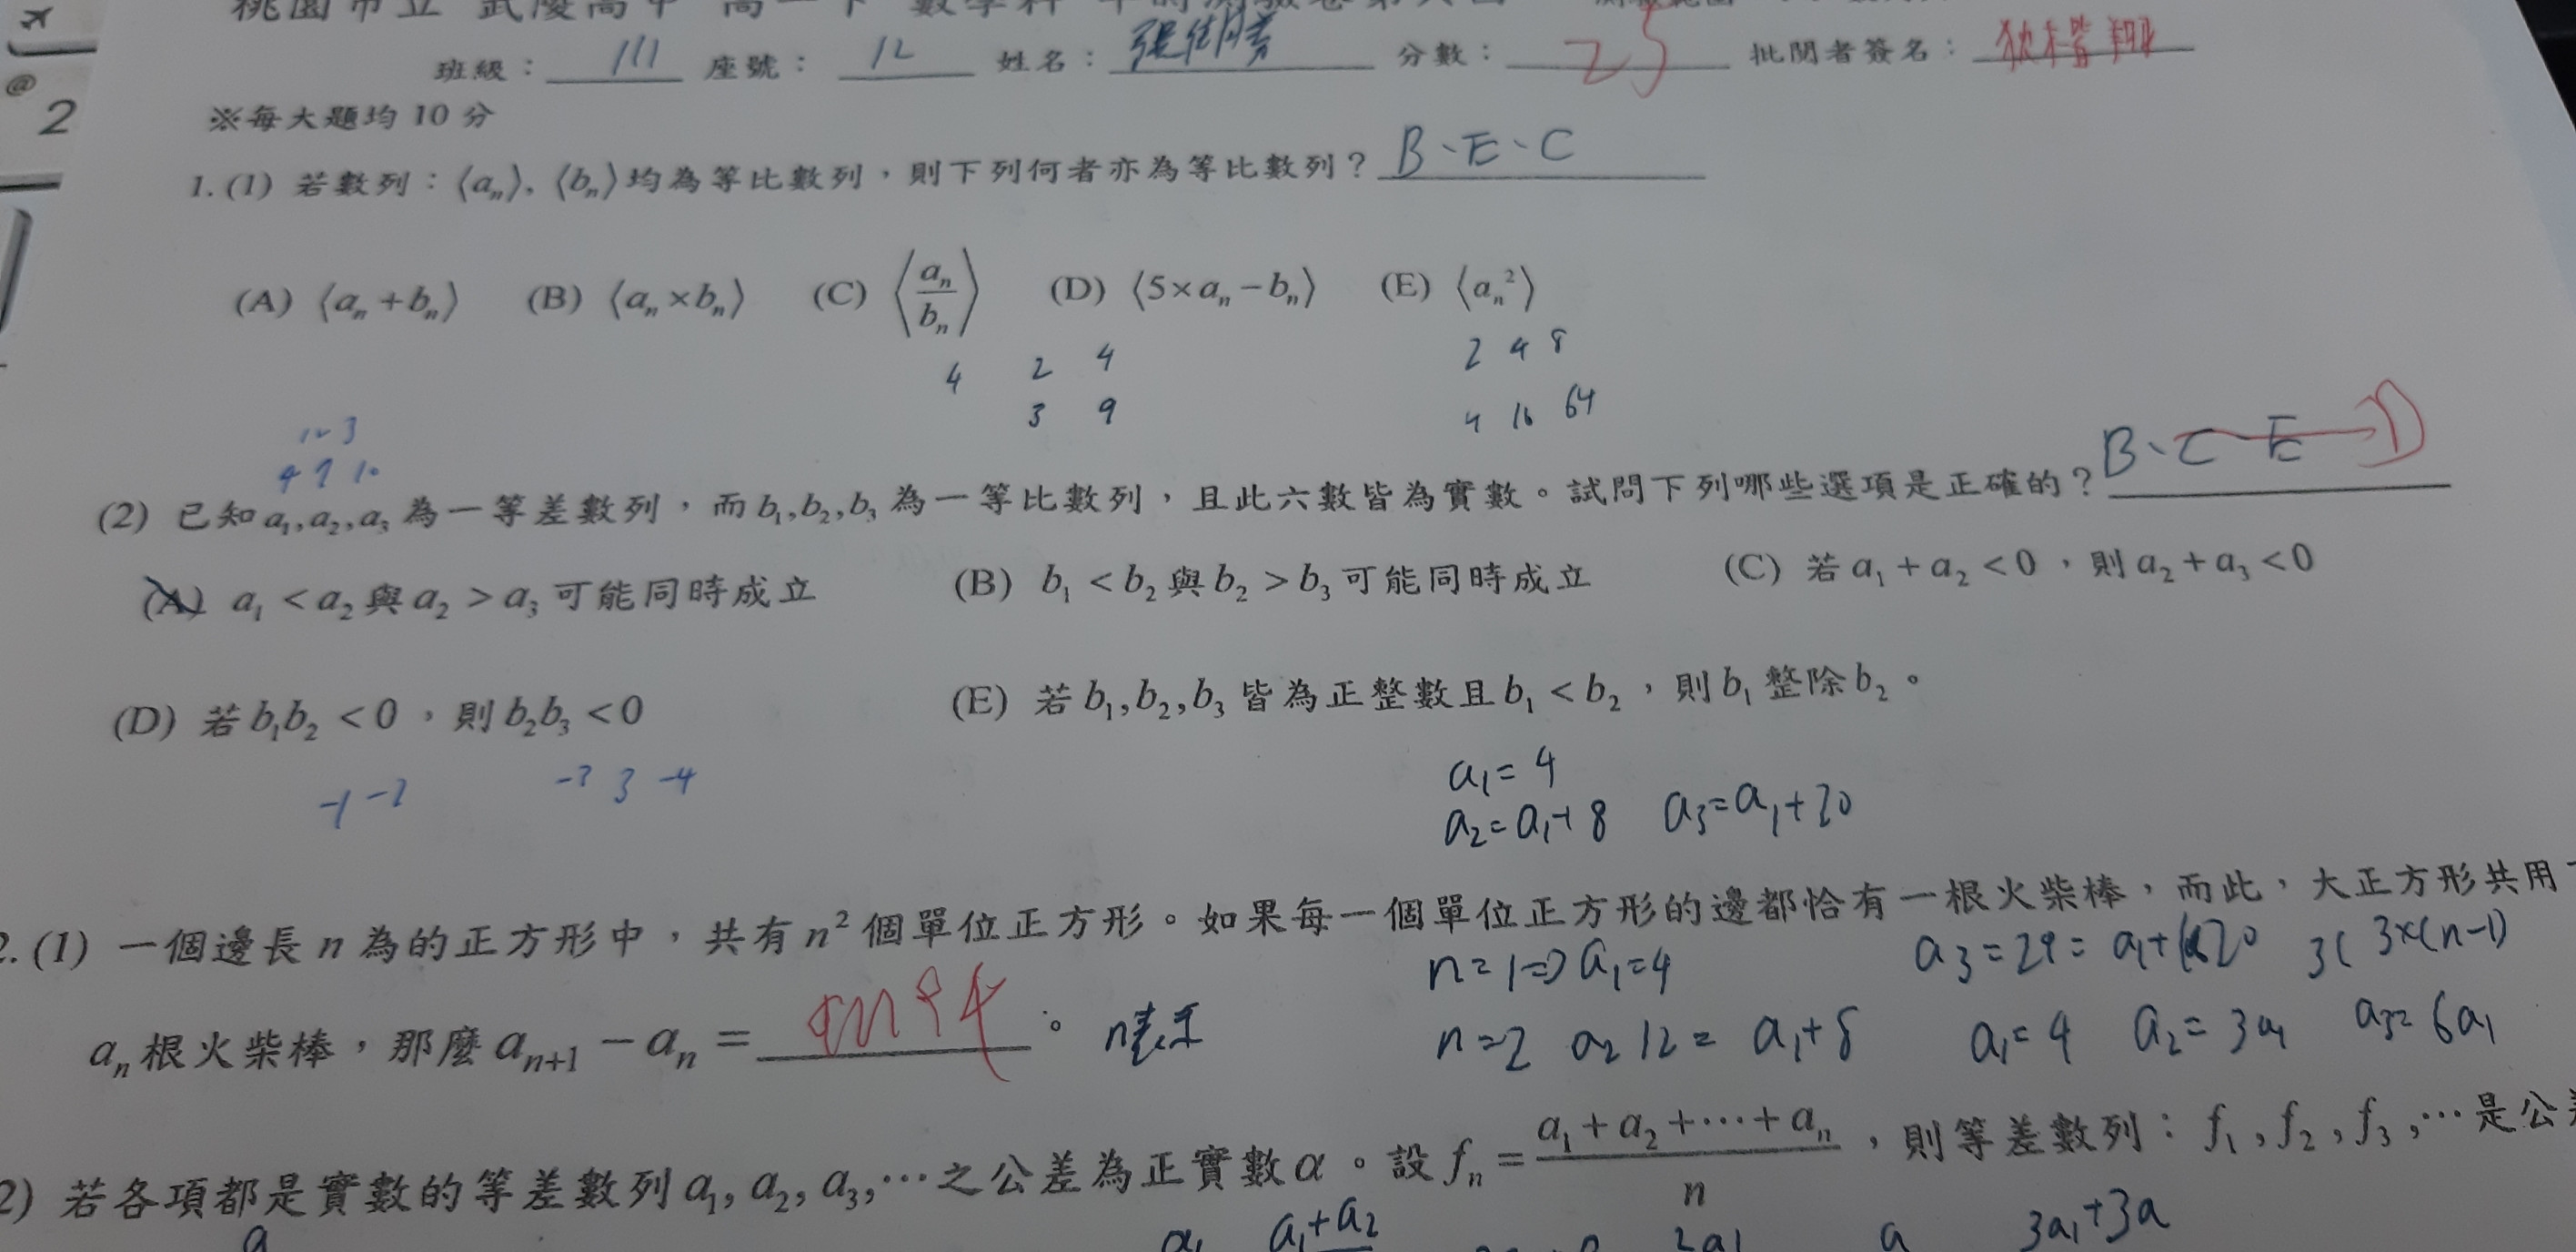 桃園市立 武陵高中 高一下 數學科
班級：111 座號：12 姓名： 分數：25 批閱者簽名：
@
2
※每大題均 10 分
1.(1) 若數列：⟨aₙ⟩, ⟨bₙ⟩均為等比數列，則下列何者亦為等比數列？B、E、C
(A) ⟨aₙ+bₙ⟩ (B) ⟨aₙ×bₙ⟩ (C) ⟨aₙ/bₙ⟩ (D) ⟨5×aₙ−bₙ⟩ (E) ⟨aₙ²⟩
4 2 4 2 4 8
3 9 4 16 64
(2) 已知a₁,a₂,a₃為一等差數列，而b₁,b₂,b₃為一等比數列，且此六數皆為實數。試問下列哪些選項是正確的？B、C E D
(A) a₁<a₂與a₂>a₃可能同時成立 (B) b₁<b₂與b₂>b₃可能同時成立 (C) 若a₁+a₂<0，則a₂+a₃<0
(D) 若b₁b₂<0，則b₂b₃<0 (E) 若b₁,b₂,b₃皆為正整數且b₁<b₂，則b₁整除b₂。
3 -4
a₁=4
a₂=a₁+8 a₃=a₁+20
2.(1) 一個邊長n為的正方形中，共有n²個單位正方形。如果每一個單位正方形的邊都恰有一根火柴棒，而此，大正方形共用
n=1⇒a₁=4 a₃=24=a₁+20 3×(n-1)
aₙ根火柴棒，那麼aₙ₊₁−aₙ= 。
n=2 a₂ 12=a₁+8 a₁=4 a₂=3a₁ a₃=6a₁
2) 若各項都是實數的等差數列a₁,a₂,a₃,⋯之公差為正實數α。設fₙ=(a₁+a₂+⋯+aₙ)/n，則等差數列：f₁,f₂,f₃,⋯是公
a₁+a₂ 3a₁+3a